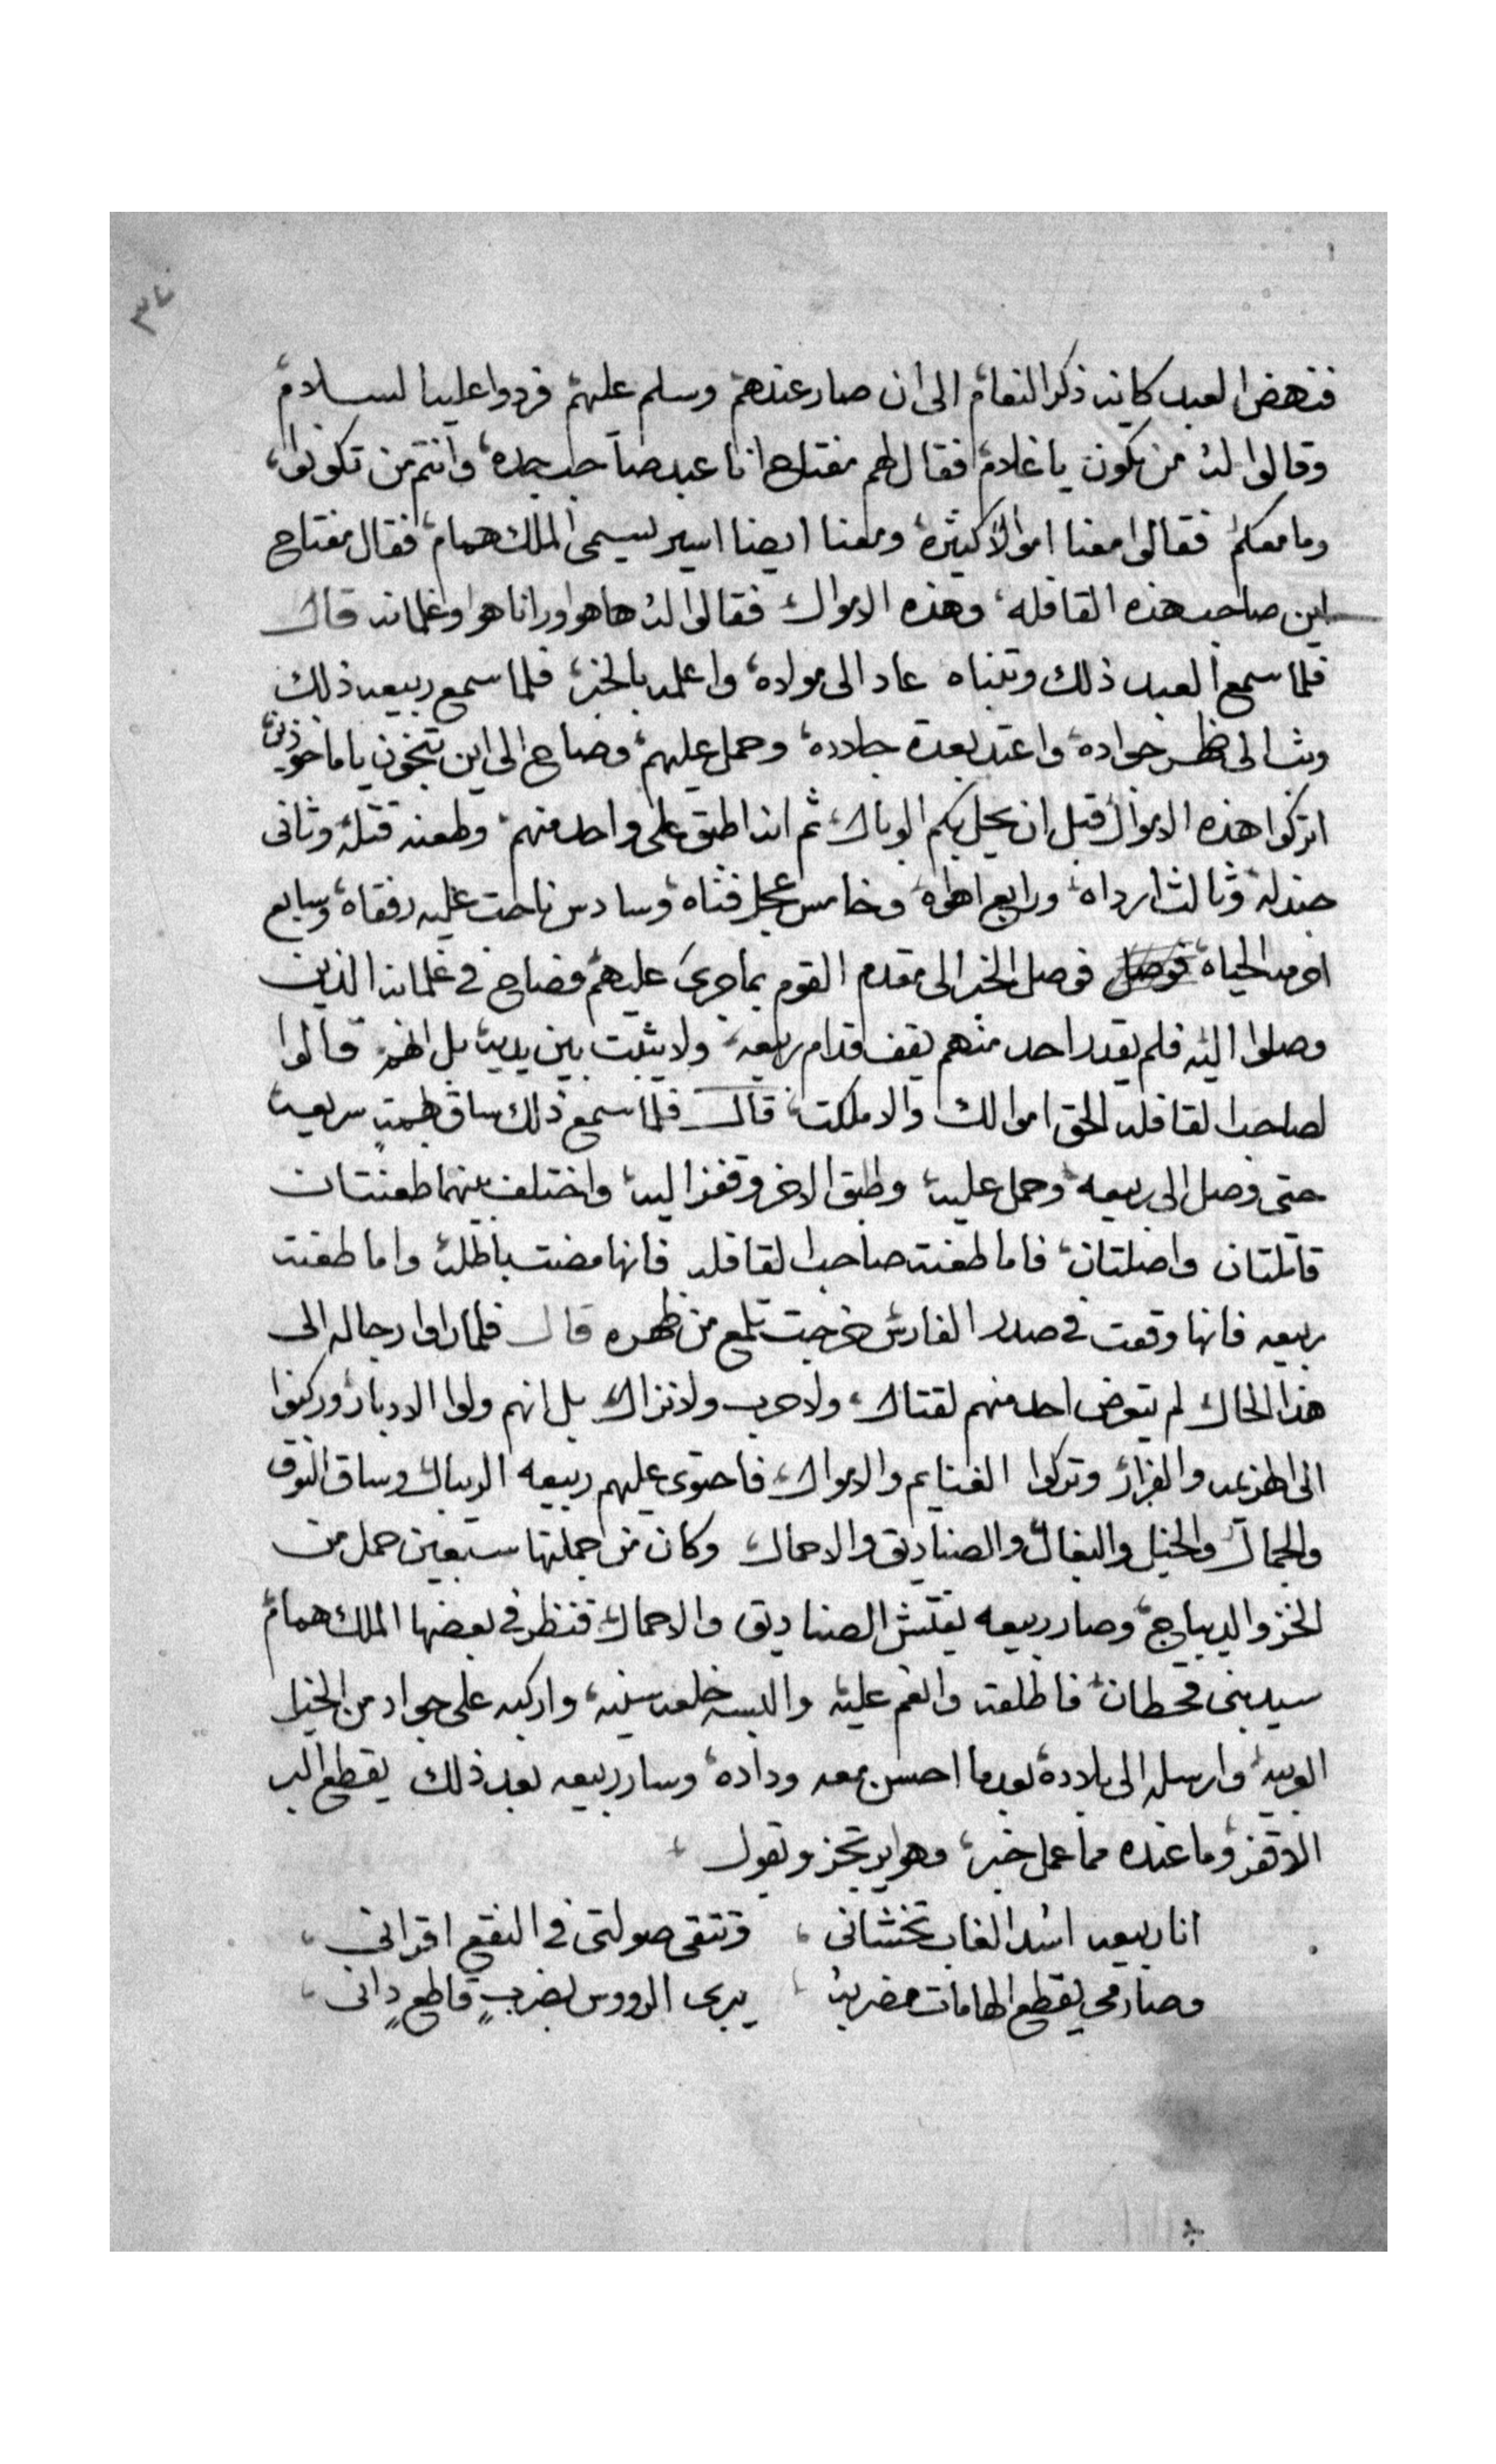 ٣٧
فنهض العبد كانه ذكر النعام الى ان صار عندهم وسلم عليهم فردوا عليه السلام
وقالوا له من تكون يا غلام فقال لهم مفتاح انا عبد صاحب جده وانتم من تكونوا
وما معكم فقالوا معنا اموالا كثيره ومعنا ايضا اسير يسمى الملك همام فقال مفتاح
اين صاحب هذه القافله وهذه الاموال فقالوا له ها هو اورانا هوا وغلمانه قال
فلما سمع العبد ذلك وتبناه عاد الى مولاه واعلمه بالخبر فلما سمع ربيعه ذلك
وثب الى ظهر جواده واعتد بعدة جلاده وحمل عليهم وصاح الى اين تنجون يا ماخوذين
اتركوا هذه الاموال قبل ان يحل بكم الوبال ثم انه اطبق على واحد منهم وطعنه قتله وثاني
جندله وثالث ارداه ورابع اهواه وخامس عجل فناه وسادس ناحت عليه رفقاه وسابع
احرمه الحياه فوصل الخبر الى مقدم القوم بما جرى عليهم فصاح في غلمانه الذين
وصلوا اليه فلم يقدر احد منهم يقف قدام ربيعه ولا يثبت بين يديه بل انهم قالوا
لصاحب القافله الحق اموالك والا ملكت قال فلما سمع ذلك ساق بهمة سريعه
حتى وصل الى ربيعه وحمل عليه وطبق الاخر وقفز اليه واختلف بينهما طعنتان
قاتلتان واصلتان فاما طعنة صاحب القافله فانها مضت باطله واما طعنت
ربيعه فانها وقعت في صدر الفارس خرجت تلمع من ظهره قال فلما راوا رجاله الى
هذا الحال لم يتعرض احد منهم لقتال ولا حرب ولا نزال بل انهم ولوا الادبار وركنوا
الى الهزيمه والفرار وتركوا الغنايم والاموال فاحتوى عليهم ربيعه الريبال وساق النوق
والجمال والخيل والبغال والصناديق والاحمال وكان من جملتها سبعين حمل من
الخز والديباج وصار ربيعه يفتش الصناديق والاحمال فنظر في بعضها الملك همام
سيد بني قحطان فاطلقه وانعم عليه والبسه خلعه سنيه واركبه على جواد من الخيل
العربيه وارسله الى بلاده بعد ما احسن معه وداده وسار ربيعه بعد ذلك يقطع البر
الاقفر وما عنده مما عمل خبر وهو يرتجز ويقول
انا ربيعه اسد الغاب تخشاني وتتقي صولتي في النقع اقراني
وصارمي يقطع الهامات مضربه يبرى الرووس بضربٍ قاطعٍ داني